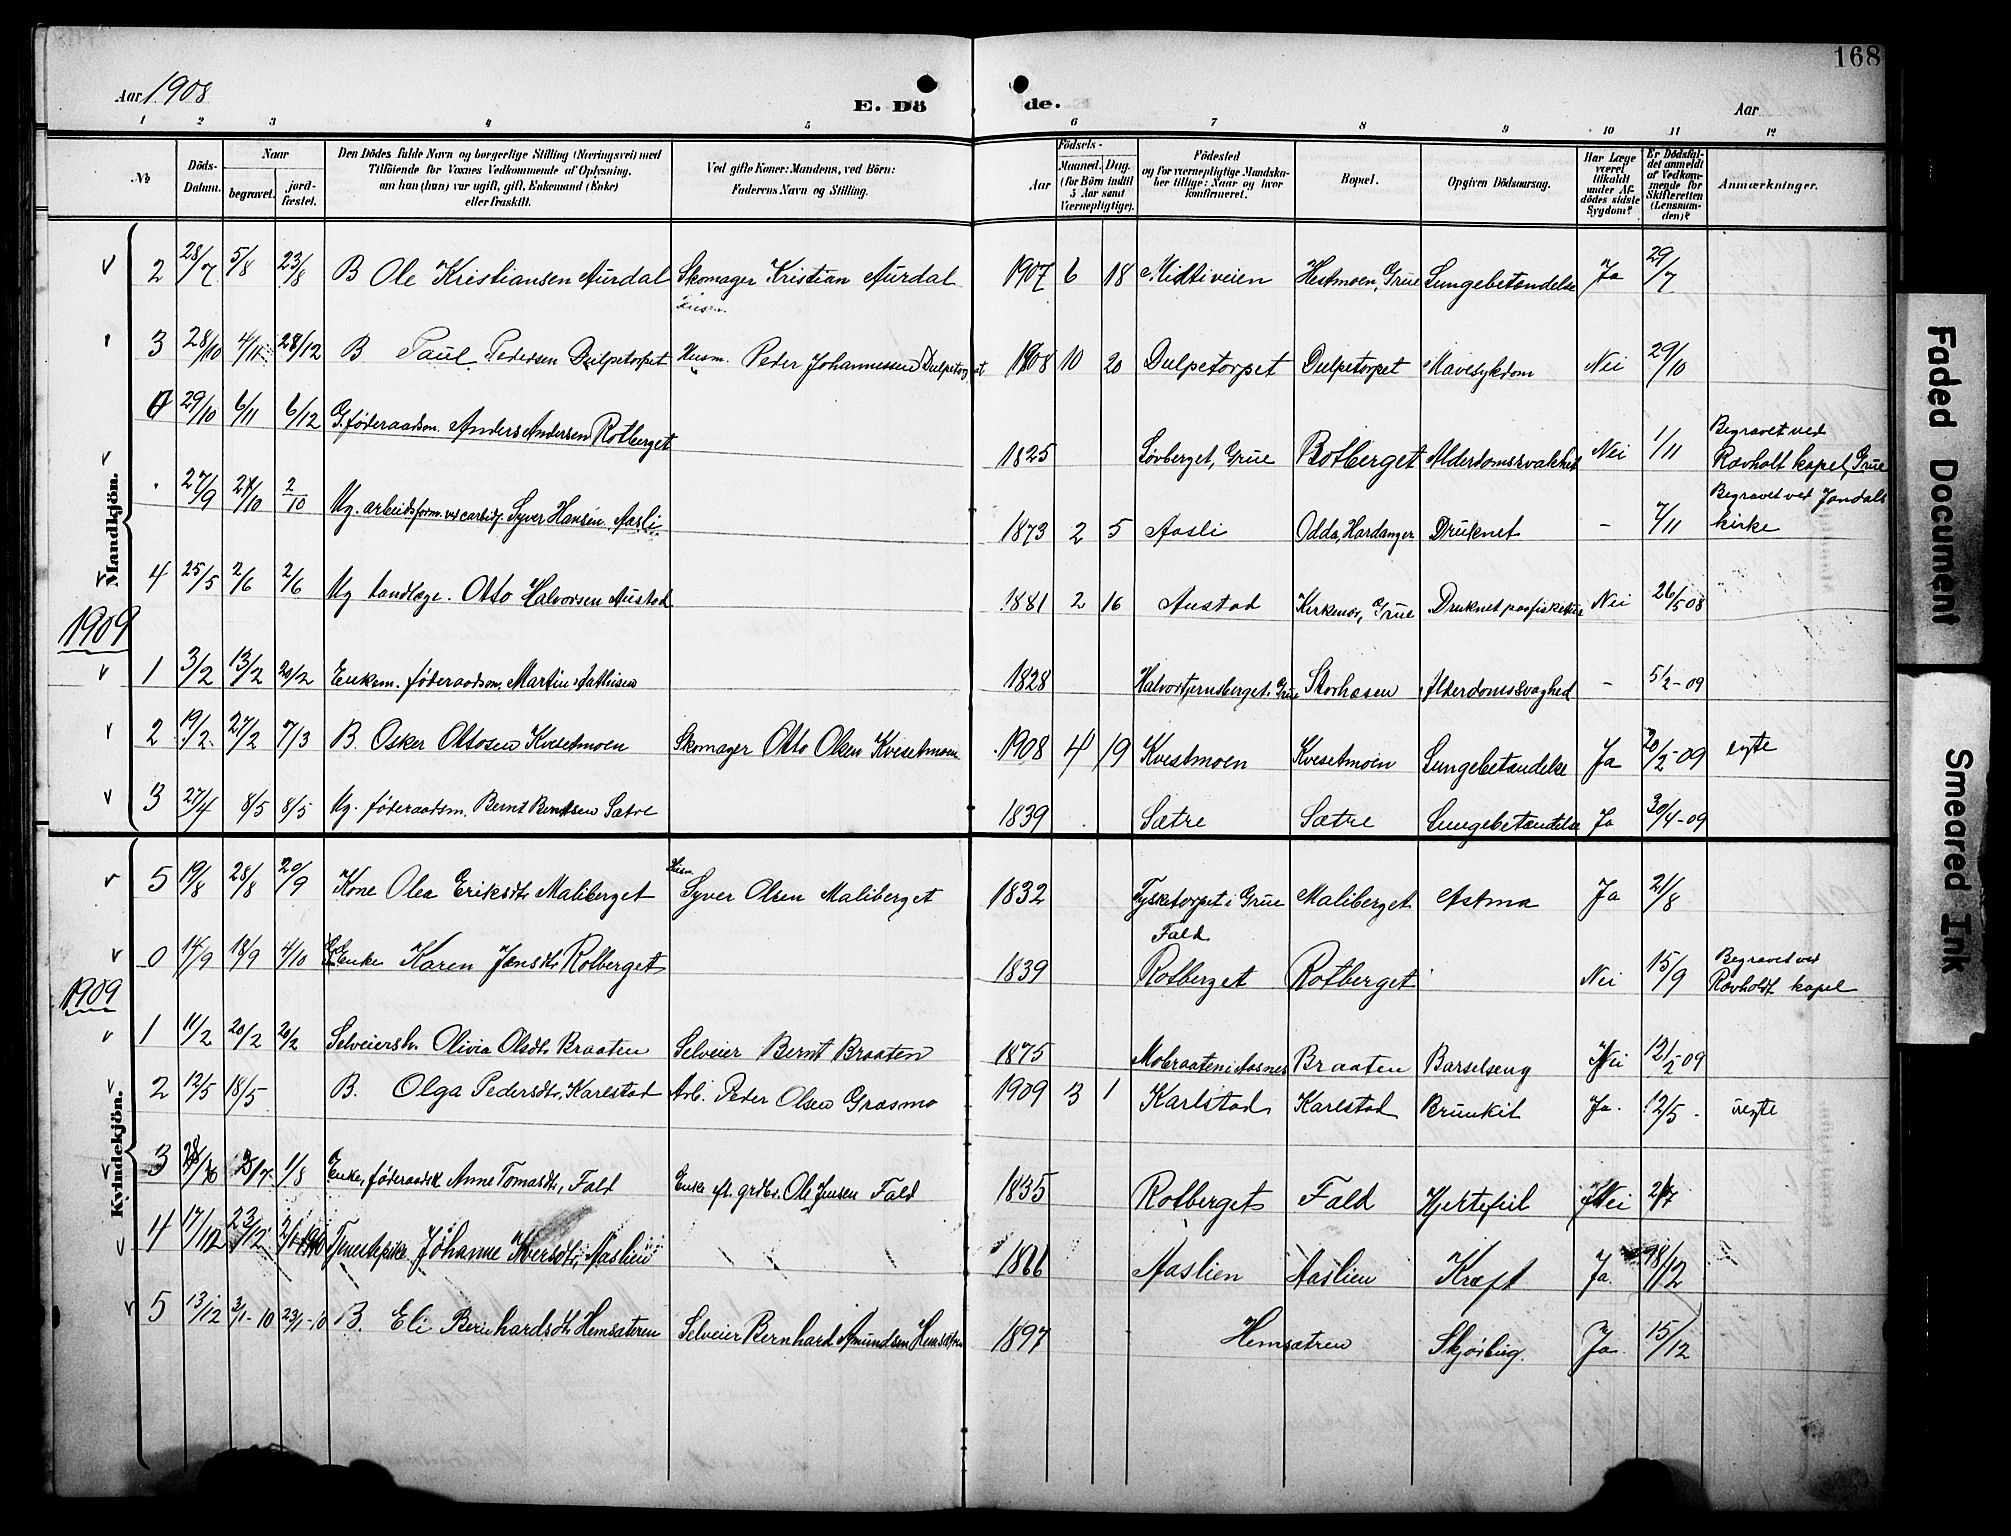 168
Aar 1908
E. Döde.
Aar
1 2 3 4 5 6 7 8 9 10 11 12
No
Döds-Datum.
Naar
begravet.
jord-fæstet.
Den Dödes fulde Navn og borgerlige Stilling (Næringsvei) med
Tilföiende for Voxnes Vedkommende af Oplysning,
om han (hun) var ugift, gift, Enkemand (Enke)
eller fraskilt.
Ved gifte Koner: Mandens, ved Börn:
Faderens Navn og Stilling.
Födsels-
Aar
Maaned. Dag.
(for Börn indtil
5 Aar samt
Værnepligtige).
Födested
og for værnepligtige Mandska-
ber tillige: Naar og hvor
konfirmeret.
Bopæl.
Opgiven Dödsaarsag.
Har Læge
været
tilkaldt
under Af-
dødes sidste
Sygdom?
Er Dödsfal-
det anmeldt
af Vedkom-
mende for
Skifteretten
(Lensman-
den)?
Anmærkninger.
Mandkjön.
2 28/7 5/8 23/8 B Ole Kristiansen Aurdal Skomager Kristian Aurdal 1907 6 18 Midtiveien Hestmoen, Grue Lungebetændelse Ja 29/7
3 28/10 4/11 28/12 B Paul Pedersen Dulpetorpet Husm. Peder Johannessen Dulpetorpet 1908 10 20 Dulpetorpet Dulpetorpet Mavesykdom Nei 29/10
0 29/10 6/11 6/12 G. føderaadsm. Anders Andersen Rotberget 1825 Løvberget, Grue Rotberget Alderdomssvakhet Nei 1/11 Begravet ved
Rovholt kapel, Grue
27/9 2/10 Ug. arbeidsform. ved carbidf. Syver Hansen Aasli 1873 2 5 Aasli Odda, Hardanger Druknet - 7/11 Begravet ved Jondals
kirke
4 25/5 2/6 2/6 Ug tandlæge. Otto Halvorsen Austad 1881 2 16 Austad Kirkenær, Grue Druknet paa fisketur Nei 26/5 08
1909
1 3/2 13/2 20/2 Enkem. føderaadsm. Martin Mathisen 1828 Halvortjernsberget, Grue Storhasen Alderdomssvaghed - 5/2-09
2 19/2 27/2 7/3 B. Osker Ottosen Kvesetmoen Skomager Otto Olsen Kvesetmoen 1908 4 19 Kvestmoen Kvesetmoen Lungebetændelse Ja 20/2-09 egte
3 27/4 8/5 8/5 Ug. føderaadsm. Bernt Berntsen Sætre 1839 Sætre Sætre Lungebetændelse Ja 30/4-09
Kvindekjön.
5 19/8 28/8 20/9 Kone Olea Eriksdtr Maliberget Husm. Syver Olsen Maliberget 1832 Tysketorpet i Grue Maliberget Astma Ja 21/8
Fald
0 14/9 18/9 4/10 Enke Karen Jonsdtr Rotberget 1839 Rotberget Rotberget Nei 15/9 Begravet ved
Rovholdt kapel
1909
1 11/2 20/2 20/2 Selveiersk. Olivia Olsdtr Braaten Selveier Bernt Braaten 1875 Mobraaten i Aasnes Braaten Barselseng Nei 12/2-09
2 12/5 18/5 B. Olga Pedersdtr, Karlstad Arb. Peder Olsen Grasmo 1909 3 1 Karlstad Karlstad Brunkit Ja. 12/5 uegte
3 25/7 1/8 Enke, føderaadsk Anne Tomasdtr, Fald Enke eft. grdbr. Ole Jensen Fald 1835 Rotberget Fald Hjertefeil Nei
4 17/12 23/12 Tjenestepike Johanne Iversdtr, Aaslien Aaslien Aaslien Kræft Ja 18/12
5 13/12 3/1-10 23/1-10 B. Eli Bernhardsdtr Hemsæteren Selveier Bernhard Amundsen Hemsætren 1897 Hemsætren Skjørbug. Ja 15/12
Faded Document
Smeared Ink